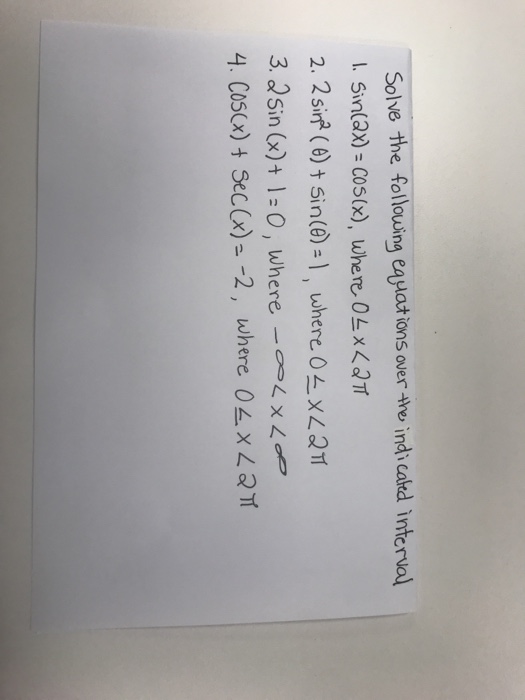 Solve the following equations over the indicated interval
1. Sin(2x) = cos(x), where 0 ≤ x < 2π
2. 2 sin²(θ) + sin(θ) = 1, where 0 ≤ x < 2π
3. 2 sin(x) + 1 = 0, where -∞ < x < ∞
4. Cos(x) + Sec(x) = -2, where 0 ≤ x < 2π